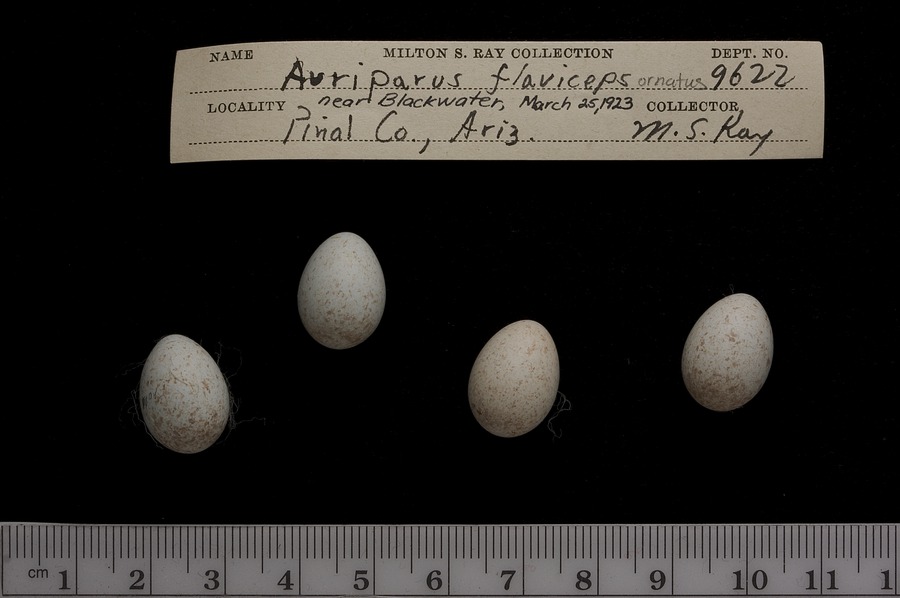 NAME MILTON S. RAY COLLECTION DEPT. NO.
Auriparus flaviceps ornatus 9622
LOCALITY near Blackwater, March 25, 1923 COLLECTOR,
Pinal Co., Ariz. M. S. Ray
cm 1 2 3 4 5 6 7 8 9 10 11 1